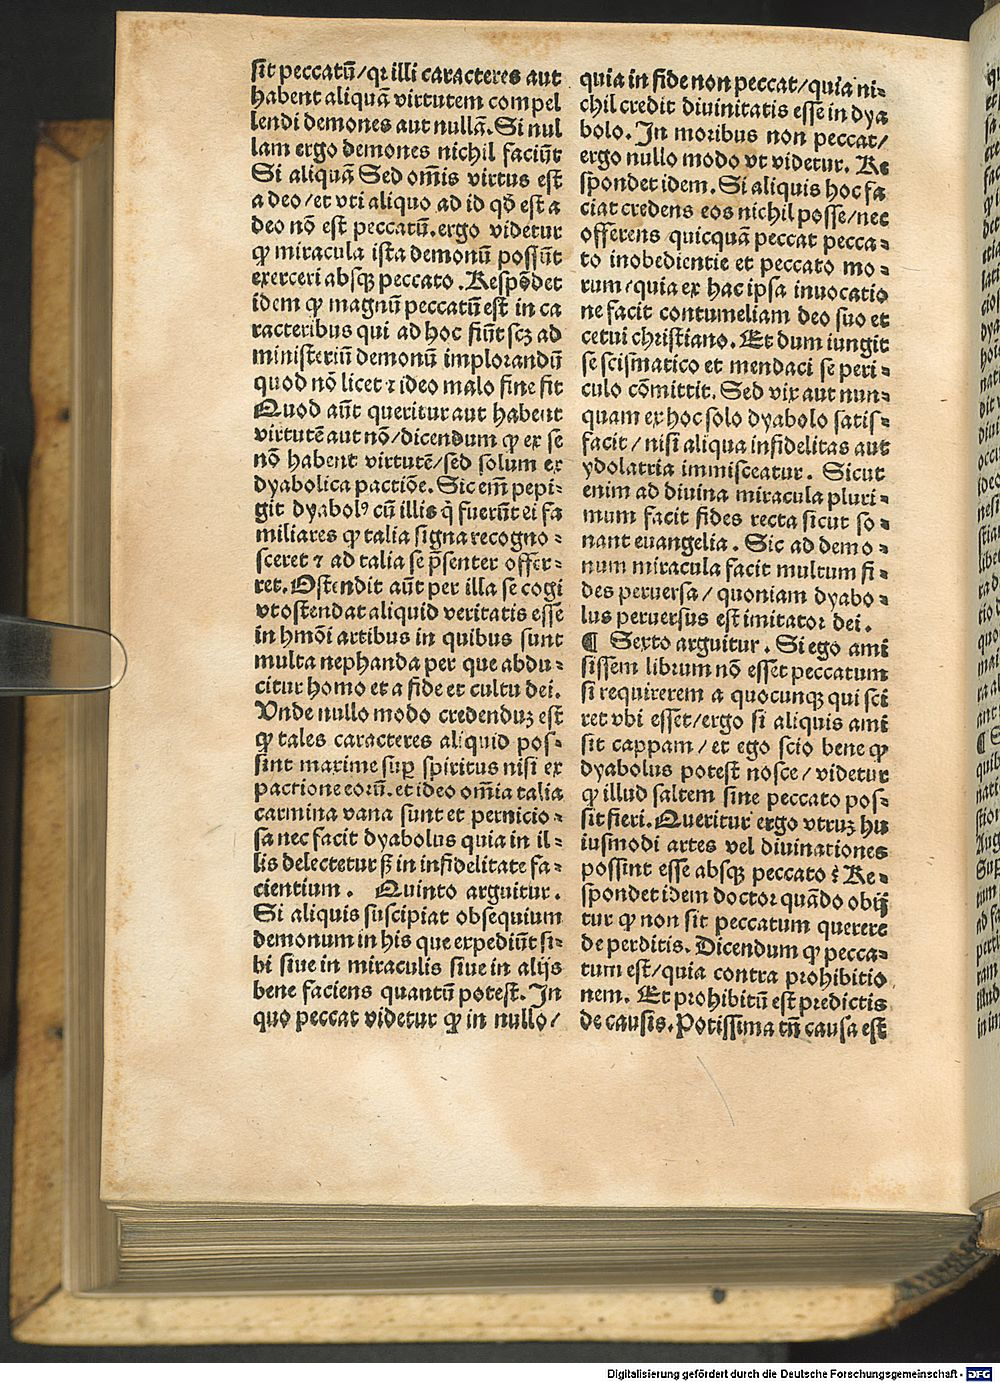 sit peccatū/qꝛ illi caracteres aut
habent aliquā virtutem compel
lendi demones aut nullā. Si nul
lam ergo demones nichil faciūt
Si aliquā Sed om̄is virtus est
a deo/et vti aliquo ad id qď est a
deo nō est peccatū. ergo videtur
ꝙ miracula ista demonū possūt
exerceri absqꝫ peccato. Respōdet
idem ꝙ magnū peccatū est in ca
racteribus qui ad hoc fiūt scꝫ ad
ministeriū demonū implorandū
quod nō licet ⁊ ideo malo fine fit
Quod aūt queritur aut habent
virtutē aut nō/dicendum ꝙ ex se
nō habent virtutē/sed solum ex
dyabolica pactiōe. Sic em̄ pepi⸗
git dyabolꝰ cū illis q̄ fuerūt ei fa
miliares ꝙ talia signa recogno⸗
sceret ⁊ ad talia se p̄senter offer⸗
ret. Ostendit aūt per illa se cogi
vt ostendat aliquid veritatis esse
in hmōi artibus in quibus sunt
multa nephanda per que abdu⸗
citur homo et a fide et cultu dei.
Vnde nullo modo credenduꝫ est
ꝙ tales caracteres aliquid pos⸗
sint maxime suꝑ spiritus nisi ex
pactione eorū. et ideo om̄ia talia
carmina vana sunt et pernicio⸗
sa nec facit dyabolus quia in il⸗
lis delectetur sꝫ in infidelitate fa⸗
cientium. Quinto arguitur.
Si aliquis suscipiat obsequium
demonum in his que expediūt si⸗
bi siue in miraculis siue in alijs
bene faciens quantū potest. In
quo peccat videtur ꝙ in nullo/
quia in fide non peccat/quia ni⸗
chil credit diuinitatis esse in dya
bolo. In moribus non peccat/
ergo nullo modo vt videtur. Re
spondet idem. Si aliquis hoc fa
ciat credens eos nichil posse/nec
offerens quicquā peccat pecca⸗
to inobedientie et peccato mo⸗
rum/quia ex hac ipsa inuocatio
ne facit contumeliam deo suo et
cetui christiano. Et dum iungit
se scismatico et mendaci se peri⸗
culo cōmittit. Sed vix aut nun⸗
quam ex hoc solo dyabolo satis⸗
facit/nisi aliqua infidelitas aut
ydolatria immisceatur. Sicut
enim ad diuina miracula pluri⸗
mum facit fides recta sicut so⸗
nant euangelia. Sic ad demo⸗
num miracula facit multum fi⸗
des peruersa/quoniam dyabo⸗
lus peruersus est imitator dei.
¶ Sexto arguitur. Si ego ami
sissem librum nō esset peccatum
si requirerem a quocunqꝫ qui sci
ret vbi esset/ergo si aliquis ami
sit cappam/et ego scio bene ꝙ
dyabolus potest nosce/videtur
ꝙ illud saltem sine peccato pos⸗
sit fieri. Queritur ergo vtruꝫ hu
iusmodi artes vel diuinationes
possint esse absqꝫ peccato? Re⸗
spondet idem doctor quādo obij
tur ꝙ non sit peccatum querere
de perditis. Dicendum ꝙ pecca⸗
tum est/quia contra prohibitio
nem. Et prohibitū est predictis
de causis. Potissima tn̄ causa est
Digitalisierung gefördert durch die Deutsche Forschungsgemeinschaft - DFG